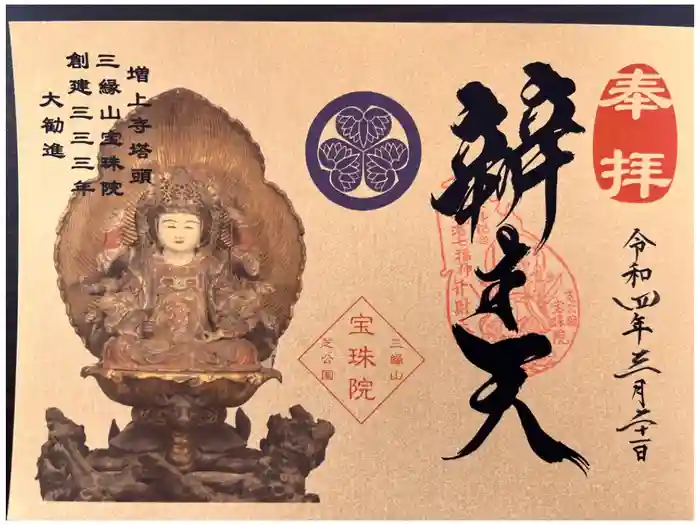 奉拝
令和四年三月二十一日
辨才天
増上寺塔頭
三縁山宝珠院
創建三三三年
大勧進
三縁山
宝珠院
芝公園